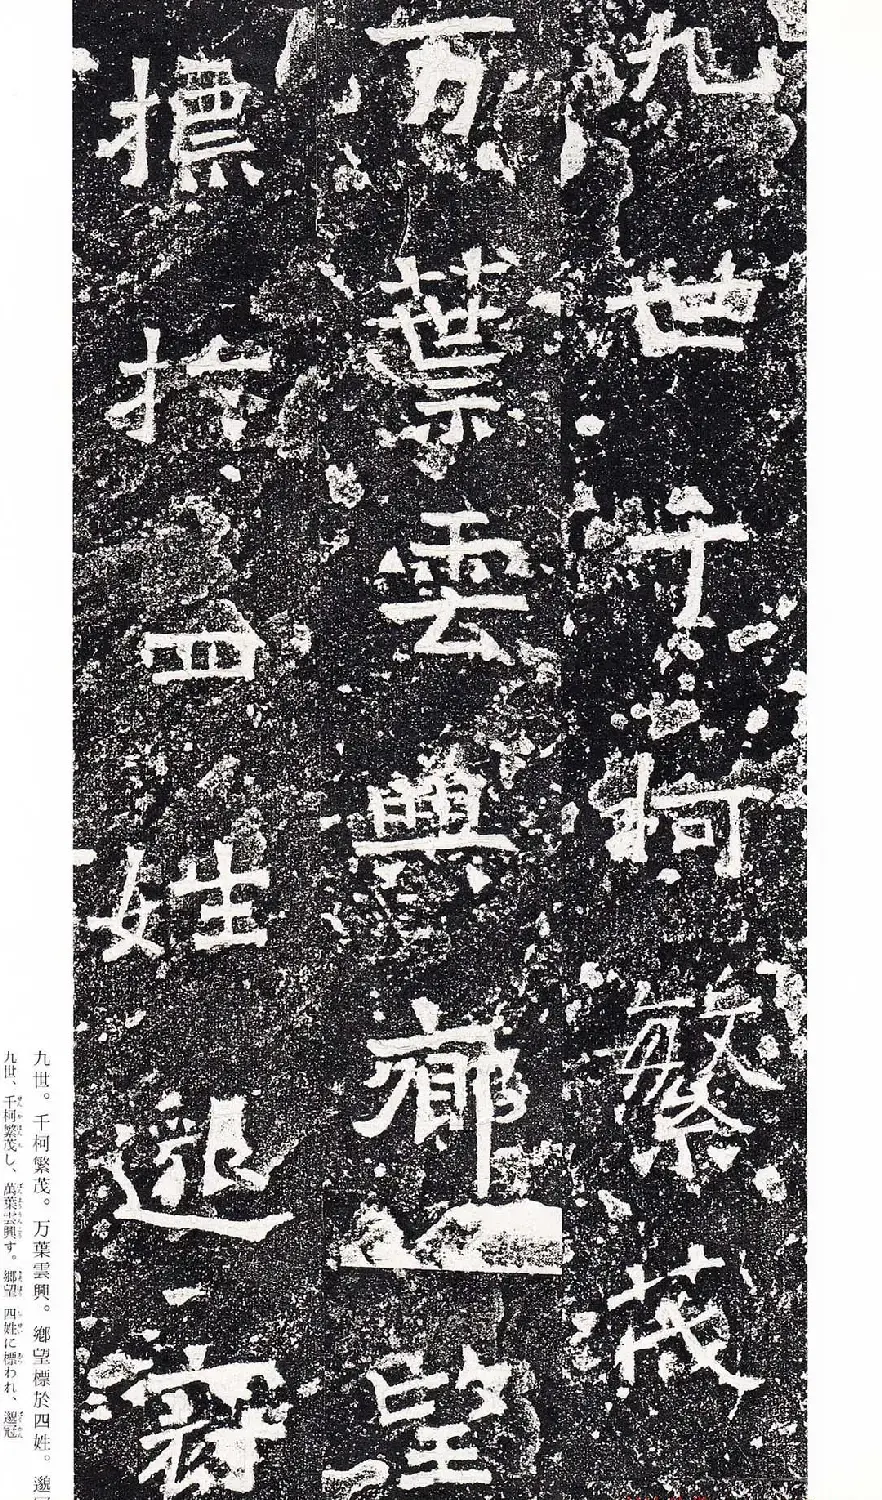 九世千柯繁茂
万葉雲興鄉望
標於四姓邈冠
九世。千柯繁茂。万葉雲興。鄉望標於四姓。邈
九世、千柯繁茂し、萬葉雲興す。鄉望 四姓に標われ、邈冠